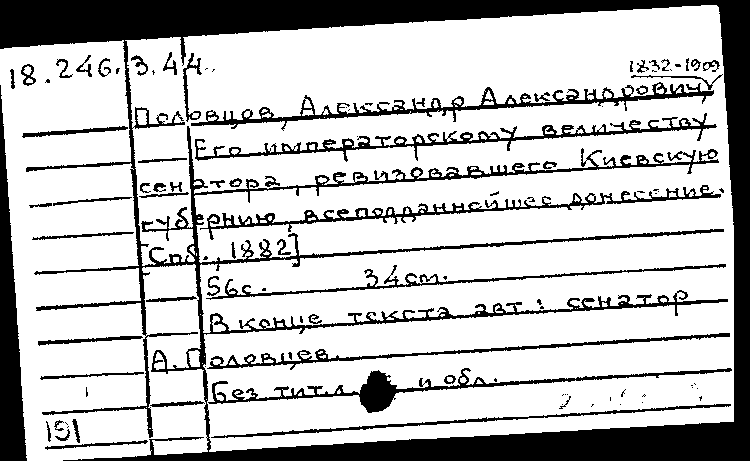 18.246.3.44.
1832-1909
Половцов, Александр Александрович,
Его императорскому величеству
сенатора, ревизовавшего Киевскую
губернию, всеподданнейшее донесение.
[Спб., 1882]
56с. 34см.
В конце текста авт.: сенатор
А. Половцев.
Без тит. л. и обл.
191